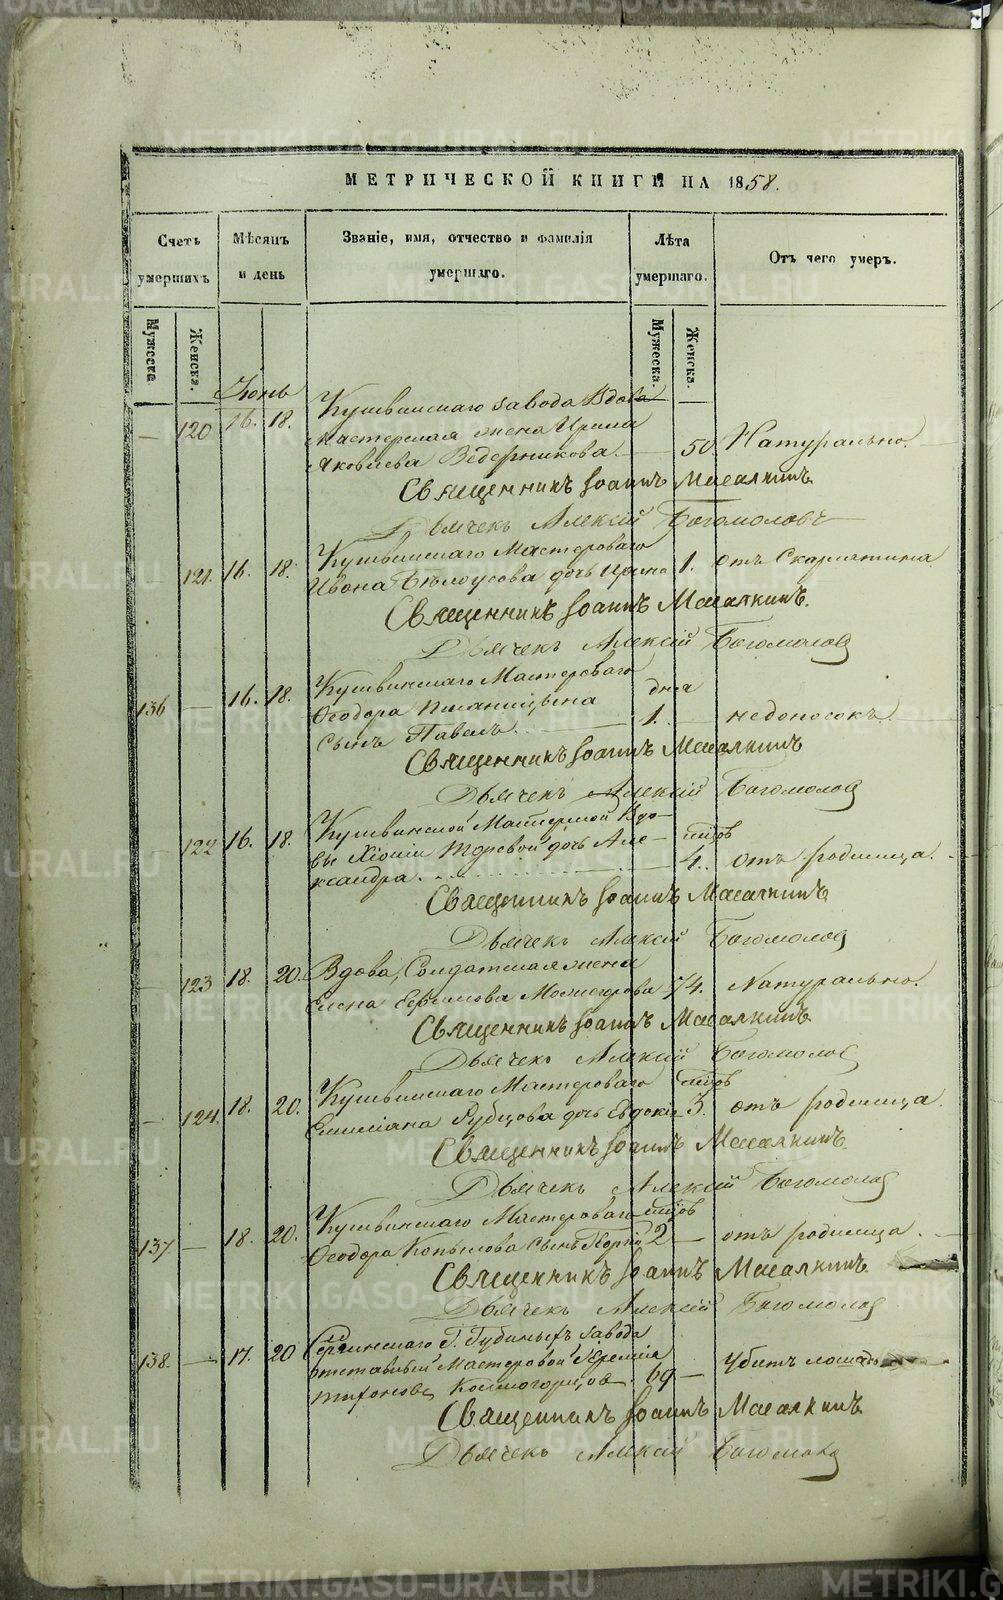 МЕТРИЧЕСКОЙ КНИГИ НА 1858.
Счетъ умершихъ
Мѣсяцъ и день
Званіе, имя, отчество и фамилія умершаго.
Лѣта умершаго.
Отъ чего умеръ.
Мужеска.
Женска.
Мужеска.
Женска.
Іюнь
Кушвинскаго завода Вдова
— 120 16. 18. мастерская жена Ирина
Яковлева Ведерникова. — 50. Натурально.
Священникъ Іоаннъ Масалкинъ
Дьячекъ Алексій Богомоловъ
Кушвинскаго Мастероваго
— 121. 16. 18. Ивана Бѣлоусова дочь Ирина 1. отъ Скарлатина
Священникъ Іоаннъ Масалкинъ.
Дьячекъ Алексій Богомолов
Кушвинскаго Мастероваго дня
136 — 16. 18. Ѳеодора
Сынъ Павелъ. — 1. недоносокъ.
Священникъ Іоаннъ Масалкинъ
Дьячекъ Алексій Богомолов
Кушвинской Мастерской Вдо-
122 16. 18. вы Хіоніи дочь Але-
ксандра. 4. отъ родимца.
Священникъ Іоаннъ Масалкинъ
Дьячекъ Алексій Богомолов
— 123 18. 20. Вдова, Солдатская жена
Елена Ефимова 74. Натурально.
Священникъ Іоаннъ Масалкинъ.
Дьячекъ Алексій Богомолов
Кушвинскаго Мастероваго
— 124. 18. 20. Емиліана Рубцова дочь Евдокія 3. отъ родимца.
Священникъ Іоаннъ Масалкинъ.
Дьячекъ Алексій Богомолов
Кушвинскаго Мастероваго
137 — 18. 20. Ѳеодора Копылова Сынъ 2 — отъ родимца.
Священникъ Іоаннъ Масалкинъ
Дьячекъ Алексій Богомолов
Сергинскаго Г. Губиныхъ завода
138. — 17. 20 отставный Мастеровой Іеремія
Тифоновъ Колмогорцовъ. 69 — Убитъ лошадью
Священникъ Іоаннъ Масалкинъ.
Дьячекъ Алексій Богомолов
METRIKI.GASO-URAL.RU